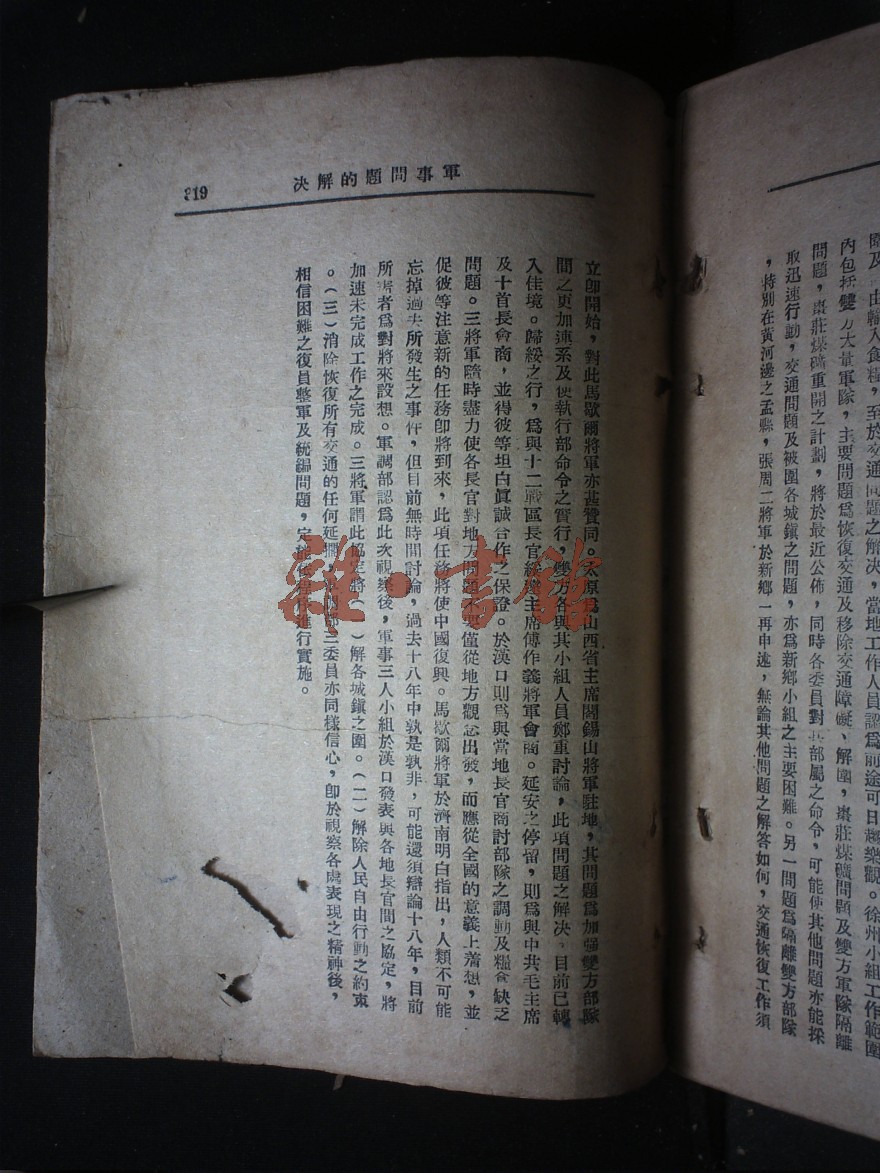 園及　由輸入食糧，至於交通問題之解決，當地工作人員認爲前途可日趨樂觀。徐州小組工作範圍
內包括雙方大量軍隊，主要問題爲恢復交通及移除交通障礙、解圍，棗莊煤礦問題及雙方軍隊隔離
問題，棗莊煤礦重開之計劃，將於最近公佈，同時各委員對其部屬之命令，可能使其他問題亦能採
取迅速行動，交通問題及被圍各城鎭之問題，亦爲新鄉小組之主要困難。另一問題爲隔離雙方部隊
，特別在黃河邊之孟縣，張周二將軍於新鄉一再申述，無論其他問題之解答如何，交通恢復工作須
軍事問題的解決
319
立卽開始，對此馬歇爾將軍亦甚贊同。太原爲山西省主席閻錫山將軍駐地，其問題爲加强雙方部隊
間之更加連系及使執行部命令之實行，雙方各與其小組人員鄭重討論，此項問題之解決，目前已轉
入佳境。歸綏之行，爲與十二戰區長官綏遠主席傅作義將軍會商。延安之停留，則爲與中共毛主席
及十首長會商，並得彼等坦白眞誠合作之保證。於漢口則爲與當地長官商討部隊之調動及糧食缺乏
問題。三將軍隨時盡力使各長官對地方問題不要僅從地方觀念出發，而應從全國的意義上着想，並
促彼等注意新的任務卽將到來，此項任務將使中國復興。馬歇爾將軍於濟南明白指出，人類不可能
忘掉過去所發生之事件，但目前無時間討論，過去十八年中孰是孰非，可能還須辯論十八年，目前
所需者爲對將來設想。軍調部認爲此次視察後，軍事三人小組於漢口發表與各地長官間之協定，將
加速未完成工作之完成。三將軍謂此協定將（一）解各城鎭之圍。（二）解除人民自由行動之約束
。（三）消除恢復所有交通的任何延擱。三委員亦同樣信心，卽於視察各處表現之精神後，
相信困難之復員整軍及統編問題，定能　進行實施。
雜·書館